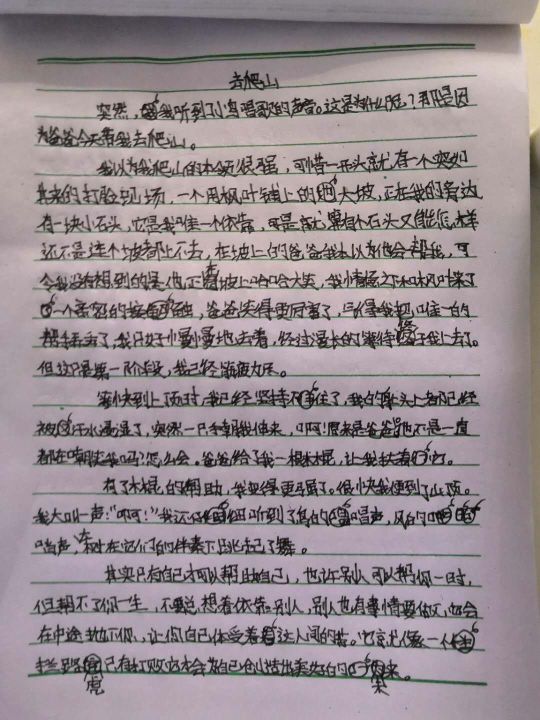 去爬山
突然,我听到了小鸟唱歌的声音。这是为什么呢?那是因
为爸爸今天带我去爬山。
我以为我爬山的本领很强,可惜一开头就有一个突如
其来的打脸现场,一个用枫叶铺上的大坡,正在我的旁边
有一块小石头,它是我唯一个依靠,可是就算有个石头又能怎么样
还不是连个坡都上不去,在坡上的爸爸我本以为他会帮我,可
令我没有想到的是他正在坡上哈哈大笑,我情急之下和枫叶来了
一个亲密的接触,爸爸笑得更厉害了,气得我把唯一的
帮手丢了,我只好小慢慢地去着,经过漫长的等待终于我上去了。
但这只是第一阶段,我已经筋疲力尽。
等快到上顶时,我已经坚持不住了,我的头上都已经
被汗水浸湿了,突然一只手朝我伸来,啊!原来是爸爸,他不是一直
都在嘲笑我吗?怎么会。爸爸给了我一根木棍,让我扶着它。
有了木棍的帮助,我变得更强了。很快我便到了山顶。
我大叫一声:"啊!"我还仔细听到了鸟的唱声,风的
声,树在它们的伴奏下跳起了舞。
其实只有自己才可以帮助自己,也许别人可以帮你一时,
但帮不了你一生,不要总想着依靠别人,别人也有事情要做,也会
在中途抛下你,让你自己体受着这人间的苦。它就像一个
拦路虎只有打败它才会为自己创造出美好的果来。
虎
果